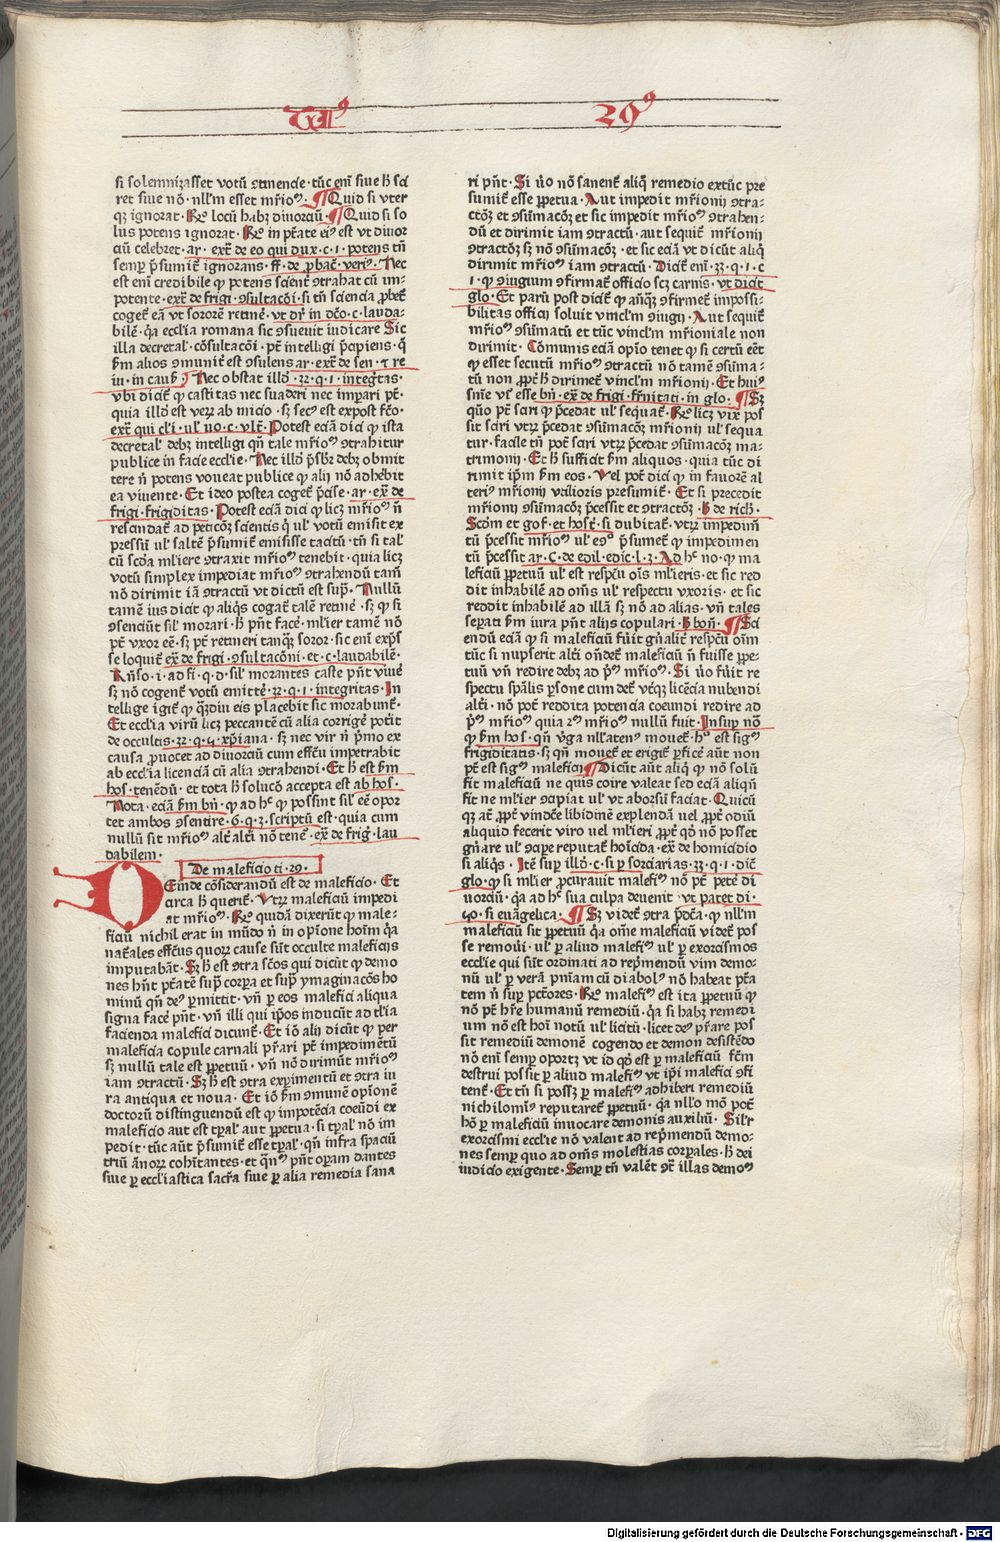 29⁹
si solemnizasset votū ꝯtinencie · tūc enī siue hꝫ sci
ret siue nō · nllꝫm esset mr̄ioꝫ. ¶ Quid si vter
qꝫ ignorat · Rꝫo locū habꝫ diuorciū · ¶ Quid si so
lus potens ignorat · Rꝫo in pt̄ate eiꝰ est vt diuor
ciū celebret · ar · ext̄ de eo qui dux · c · 1 · potens tn̄
semꝑ p̄sumit̄ ignorans · ff · de ꝓbac̄ · verꝰ. Nec
est enī credibile ꝙ potens scient̄ ꝯtrahat cū im-
potente · ext̄ de frigi · ꝯsultacōi · si tn̄ sciencia ꝓbet̄
coget̄ eā vt sororē retinē · vt dr̄ in dcō · c · lauda-
bilē · q̄a eccl̄ia romana sic ꝯsueuit iudicare Sic
illa decretal̄ · cōsultacōi · pt̄ intelligi p̄sapiens · q̄
ẜm alios ꝯmunit̄ est ꝯsulens ar · ext̄ de sen · ⁊ re
iu · in causꝭ Nec obstat illꝫ · 32 · q · 1 · integr̄tas ·
vbi dicit̄ ꝙ castitas nec suaderi nec impari pt̄ ·
quia illꝫ est verꝫ ab inicio · sꝫ secꝰ est expost fc̄o ·
ext̄ qui cl̄i · ul̄ uo · c · vlt̄ · Potest eciā dici ꝙ ista
decretal̄ debꝫ intelligi qn̄ tale mr̄ioꝫ ꝯtrahitur
publice in facie eccl̄ie · Nec illꝫ p̄sbr̄ debꝫ obmit
tere n̄ potens voueat publice ꝙ alij nō adhēbit
ea viuente · Et ideo postea coget̄ p̄cise · ar · ext̄ de
frigi · frigiditas · Potest eciā dici ꝙ licꝫ mr̄ioꝫ n̄
rescindat̄ ad peticōꝫ scientis q̄ ul̄ votū emisit ex
pressū ul̄ saltē p̄sumit̄ emisisse tacitū · tn̄ si tal̄
cū scd̄a ml̄iere ꝯtraxit mr̄ioꝫ tenebit · quia licꝫ
votū simplex impediat mr̄ioꝫ ꝯtrahendū tam̄
nō dirimit iā ꝯtractū vt dictū est sup̄ · Nullū
tamē ius dicit ꝙ aliqs̄ cogat̄ talē retinē · sꝫ ꝙ si
ꝯsenciūt sil̄ morari · hꝫ pn̄t facē · ml̄ier tamē nō
pt̄ vxor eē · sꝫ pt̄ retineri tanqꝫ soror · sic enī exp̄s
se loquit̄ ext̄ de frigi · ꝯsultacōni · et · c · laudabilē ·
An̄so · 1 · ad fi · q · d · sil̄ morantes caste pn̄t viuē
sꝫ nō cogent̄ votū emittē · 32 · q · 1 · integritas · In
tellige igit̄ ꝙ qꝫdiu eis placebit sic morabunt̄ ·
Et eccl̄ia virū licꝫ peccantē cū alia corrigē potit
de occultis · 32 · q · 4 · xp̄iana · sꝫ nec vir n̄ p̄mo ex
causa ꝓuocet ad diuorciū cum effcū impetrabit
ab eccl̄ia licenciā cū alia ꝯtrahendi · Et hꝫ est ẜm
hos · tenedū · et tota hꝫ solucō accepta est ab hos ·
Nota · eciā ẜm bn̄ · ꝙ ad hͨ ꝙ possint sil̄ eē opor
tet ambos ꝯsentire · 6 · q · 3 · scriptū est · quia cum
nullū sit mr̄ioꝫ alt̄ alt̄i nō tenet̄ · ext̄ de friḡ · lau
dabilem ·
De maleficio ti · 29 ·
DEinde cōsiderandū est de maleficio · Et
circa hꝫ querit̄ · Vtrꝫ maleficiū impedi
at mr̄ioꝫ · Rꝫo quidā dixerūt ꝙ male-
ficiū nichil erat in mūdo n̄ in opione hoīm q̄a
nat̄ales effcūs quorꝫ cause sūt occulte maleficijs
imputabāt · Sꝫ hꝫ est ꝯtra sc̄os qui dicūt ꝙ demo
nes hn̄t pt̄atē sup̄ corꝑa et sup̄ ymaginacōs ho
minū qn̄ deꝰ ꝑmittit · vn̄ ꝑ eos malefici aliqua
signa facē pn̄t · vn̄ illi qui ip̄os inducūt ad t̄lia
facienda malefici dicunt̄ · Et iō alij dicūt ꝙ per
maleficia copule carnali p̄rari pt̄ impedimētū
sꝫ nullū tale est ꝑpetuū · vn̄ nō dirimūt mr̄ioꝫ
iam ꝯtractū · Sꝫ hꝫ est ꝯtra exꝑimentū et ꝯtra iu
ra antiqua et noua · Et iō ẜm ꝯmunē opionē
doctorū distinguendū est ꝙ impotēcia coeūdi ex
maleficio aut est tꝑal̄ aut ꝑpetua · si tꝑal̄ nō im
pedit · tūc aūt p̄sumit̄ esse tꝑal̄ · qn̄ infra spaciū
triū ānorꝫ cohītantes · et qn̄ꝫ pn̄t oꝑam dantes
siue ꝑ eccl̄iastica sacr̄a siue ꝑ alia remedia sana
ri pn̄t · Si ūo nō sanent̄ aliq̄ remedio extūc pre
sumit̄ esse ꝑpetua · Aut impedit mr̄ionij ꝯtra-
ctōꝫ et ꝯsūmacōꝫ et sic impedit mr̄ioꝫ ꝯtrahen-
dū et dirimit iam ꝯtractū · aut sequit̄ mr̄ionij
ꝯtractōꝫ sꝫ nō ꝯsūmacōꝫ · et sic eciā vt dicūt aliq̄
dirimit mr̄ioꝫ iam ꝯtractū · Dicit̄ enī · 33 · q · 1 · c
1 · ꝙ ꝯiugium ꝯfirmat̄ officio scꝫ carnis · vt dicit
glo · Et parū post dicit̄ ꝙ an̄qꝫ ꝯfirmet̄ impossi-
bilitas officij soluit vincl̄m ꝯiugij · Aut sequit̄
mr̄ioꝫ ꝯsūmatū et tūc vincl̄m mr̄ioniale non
dirimit · Cōmunis eciā opīo tenet ꝙ si certū eēt
ꝙ esset secutū mr̄ioꝫ ꝯtractū nō tamē ꝯsūma-
tū non ꝓpt̄ hꝫ dirimet̄ vincl̄m mr̄ionij · Et huiꝰ
sn̄ie vꝫ esse bn̄ · ext̄ de frigi · fr̄nitati · in glo · ¶ Sꝫ
quō pt̄ sciri ꝙ p̄cedat ul̄ sequat̄ · Rꝫo licꝫ vix pos
sit sciri vtrꝫ p̄cedat ꝯsūmacōꝫ mr̄ionij ul̄ sequa
tur · facile tn̄ pot̄ sciri vtrꝫ p̄cedat ꝯsūmacōꝫ ma-
trimonij · Et hꝫ sufficit ẜm aliquos · quia tūc di
rimit ip̄m ẜm eos · Vel pot̄ dici ꝙ in fauorē al
teriꝰ mr̄ionij vcilioris presumit̄ · Et si precedit
mr̄ionij ꝯsūmacōꝫ p̄cessit et ꝯtractōꝫ · hꝫ de rich̄ ·
Scd̄m et gof̄ · et host̄ · si dubitat̄ · vtrꝫ impedim̄
tū p̄cessit mr̄ioꝫ ul̄ eꝯͦ p̄sumet̄ ꝙ impedimen
tū p̄cessit ar · C · de edil · edic · l · 2 · Ad hͨ no · ꝙ ma
leficiū ꝑpetuū ul̄ est respcū oīs ml̄ieris · et sic red
dit inhabilē ad om̄s ul̄ respectu vxoris · et sic
reddit inhabilē ad illā sꝫ nō ad alias · vn̄ tales
seꝑati ẜm iura pn̄t alijs copulari · hꝫ bon̄ · ¶ Sci
endū eciā ꝙ si maleficiū fūit gn̄alit̄ respcū oīm
tūc si nupserit alt̄i ondet̄ maleficiū n̄ fuisse ꝑpe-
tuū vn̄ redire debꝫ ad pꝫ mr̄ioꝫ · Si ūo fūit re
spectu sp̄alis ꝑsone cum det̄ vtͥqꝫ licēcia nubendi
alt̄i · nō pot̄ reddita potencia coeundi redire ad
pꝫ mr̄ioꝫ quia 2ꝫ mr̄ioꝫ nullū fuit · Insuꝑ nō
ꝙ ẜm hos · qn̄ v̄ga nll̄atenꝰ mouet̄ · hͦ est sigꝫ
frigiditatis · sꝫ qn̄ mouet̄ et erigit̄ ꝑficē aūt non
pt̄ est sigꝫ maleficij ¶ Dicūt aūt aliq̄ ꝙ nō solū
fit maleficiū ne quis coire valeat sed eciā aliqn̄
fit ne ml̄ier ꝯcipiat ul̄ vt aborsū faciat · Quicū
qꝫ at̄ ꝓpt̄ vindcē libidinē explendā vel ꝓpt̄ odiū
aliquid fecerit viro uel ml̄ieri ꝓpt̄ qͦ nō posset
gn̄are ul̄ ꝯciꝑe reputat̄ hoīcida · ext̄ de homicidio
si aliqs̄ · Itē suꝑ illꝫ · c · si ꝑ sorciarias · 33 · q · 1 · dic̄t
glo · ꝙ si ml̄ier ꝓcurauit malefiꝫ nō pt̄ petē di
uorciū · q̄a ad hͨ sua culpa deuenit · vt patet di ·
40 · si euāgelica · ¶ Sꝫ videt̄ ꝯtra p̄dc̄a · ꝙ nll̄m
maleficiū sit ꝑpetuū q̄a om̄e maleficiū videt̄ pos
se remoui · ul̄ ꝑ aliud malefiꝫ ul̄ ꝑ exorcismos
eccl̄ie qui sūt ordinati ad rep̄mendū vim demo-
nū ul̄ ꝑ verā pn̄iam cū diabolꝰ nō habeat pt̄a
tem n̄ suꝑ pctōres · Rꝫo malefiꝫ est ita ꝑpetuū ꝙ
nō pt̄ hr̄e humanū remediū · q̄a si habꝫ remedi
um nō est hoī notū ul̄ licitū · licet deꝰ p̄rare pos
sit remediū demonē cogendo et demon desistēdo
nō enī semꝑ oportꝫ vt id qͦ est ꝑ maleficiū fc̄m
destrui possit ꝑ aliud malefiꝫ vt ip̄i malefici ꝯfi
tent̄ · Et tn̄ si possꝫ ꝑ malefiꝫ adhiberi remediū
nichilominꝰ reputaret̄ ꝑpetuū · q̄a nll̄o mō pot̄
hō ꝑ maleficiū inuocare demonis auxiliū · Sil̄r
exorcismi eccl̄ie nō valent ad rep̄mendū demo-
nes semꝑ quo ad om̄s molestias corꝑales · hꝫ dei
iudicio exigente · Semꝑ tn̄ valēt ꝯt̄ illas demoꝫ
Digitalisierung gefördert durch die Deutsche Forschungsgemeinschaft - DFG